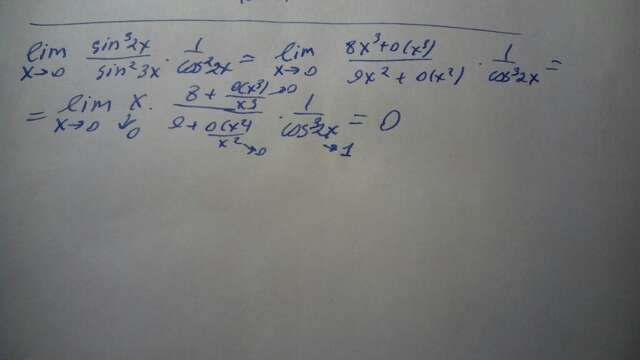 lim x→0 sin³2x / sin²3x · 1 / cos³2x = lim x→0 8x³+o(x³) / 9x²+o(x²) · 1 / cos³2x =
= lim x→0 x →0 · 8 + o(x³)/x³ →0 / 9 + o(x²)/x² →0 · 1 / cos³2x →1 = 0